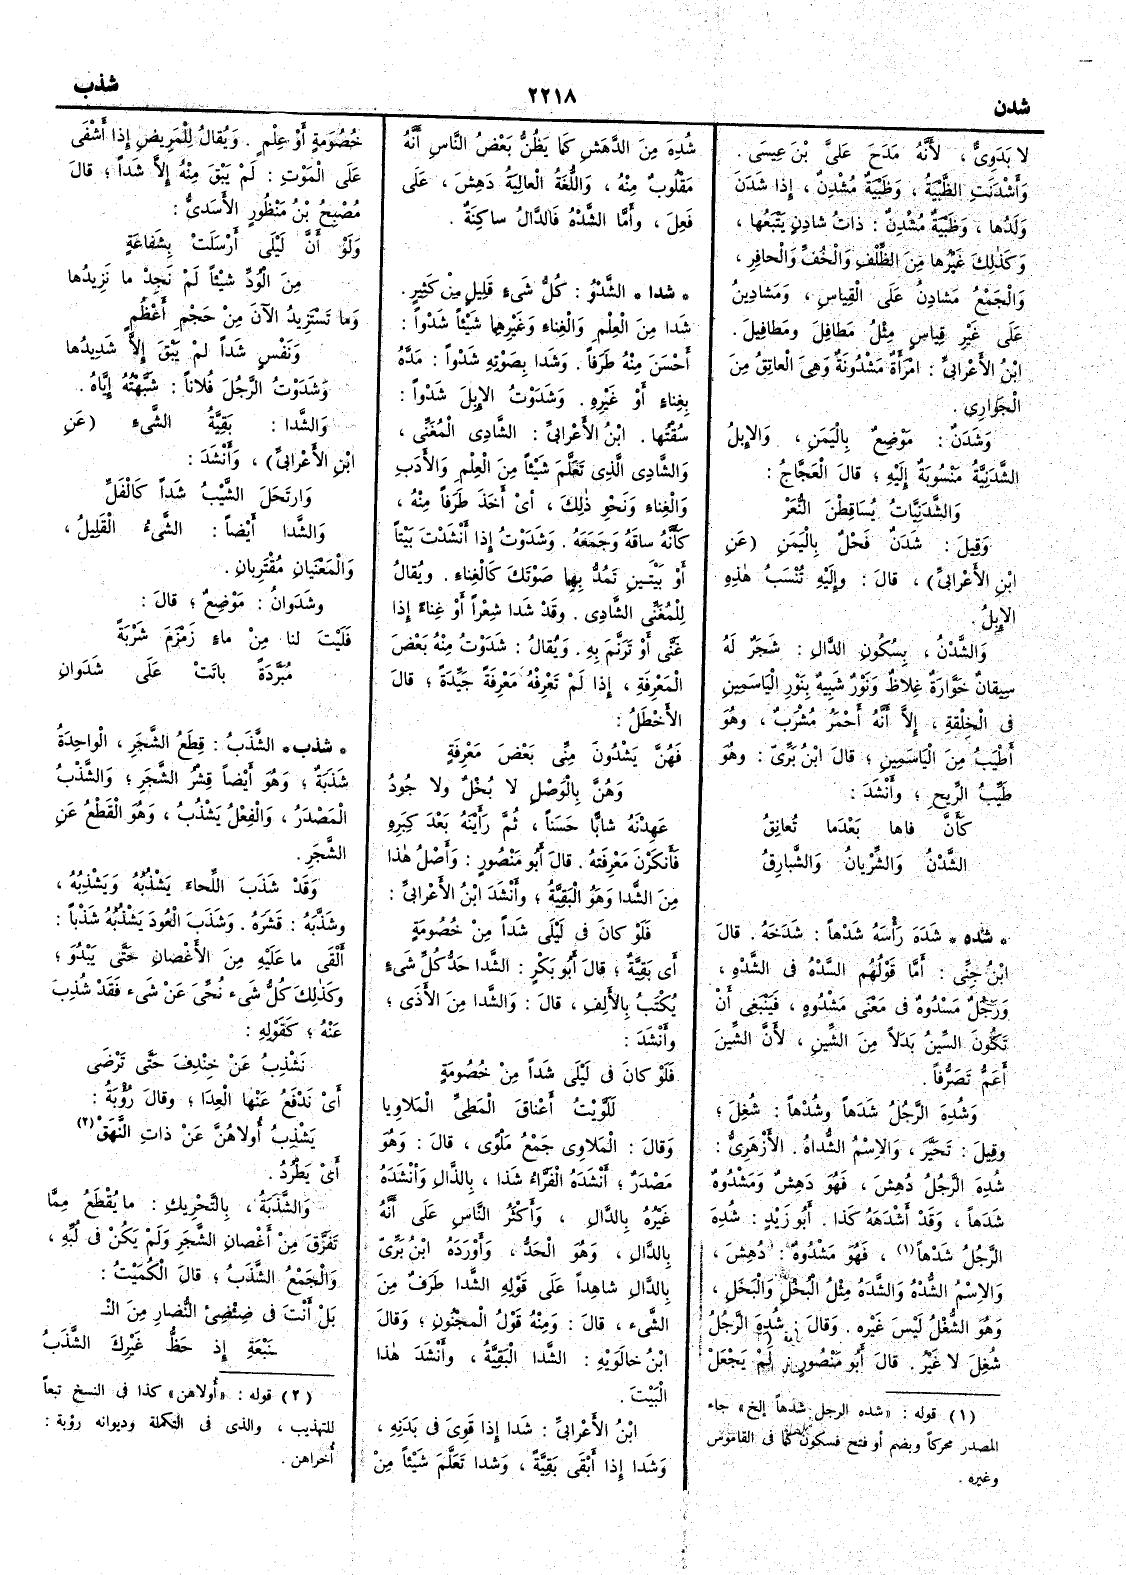 شدن
٢٢١٨
شذب
لا بَدَوِىٌّ ، لأَنَّهُ مَدَحَ عَلىَّ بْنَ عِيسَى .
وَأَشْدَنَتِ الظَّبْيَةُ ، وَظَبْيَةٌ مُشْدِنٌ ، إِذا شَدَنَ
وَلَدُها ، وَظَبْيَةٌ مُشْدِنٌ : ذاتُ شادِنٍ يَتْبَعُها ،
وَكَذٰلِكَ غَيْرُها مِنَ الظِّلْفِ وَالْخُفِّ وَالْحافِرِ ،
وَالْجَمْعُ مَشادِنُ عَلَى الْقِياسِ ، وَمَشادِينُ
عَلَى غَيْرِ قِياسٍ مِثْلُ مَطافِلَ ومَطافِيلَ .
ابْنُ الأَعْرابىِّ : امْرَأَةٌ مَشْدُونَةٌ وَهِىَ الْعاتِقُ مِنَ
الْجَوارِى .
وَشَدَنٌ : مَوْضِعٌ بِالْيَمَنِ ، وَالإِبِلُ
الشَّدَنِيَّةُ مَنْسُوبَةٌ إِلَيْهِ ؛ قالَ الْعَجَّاجُ :
وَالشَّدَنِيَّاتُ يُساقِطْنَ النُّعَرْ
وَقِيلَ : شَدَنٌ فَحْلٌ بِالْيَمَنِ (عَنِ
ابْنِ الأَعْرابىِّ) ، قالَ : وإِلَيْهِ تُنْسَبُ هٰذِهِ
الإِبِلُ .
وَالشَّدْنُ ، بِسُكُونِ الدَّالِ : شَجَرٌ لَهُ
سِيقانٌ خَوَّارَةٌ غِلاظٌ وَنَوْرٌ شَبِيهٌ بِنَوْرِ الْياسَمِينِ
فى الْخِلْقَةِ ، إِلاَّ أَنَّهُ أَحْمَرُ مُشْرَبٌ ، وهُوَ
أَطْيَبُ مِنَ الْياسَمِينِ ؛ قالَ ابْنُ بَرِّىّ : وهُوَ
طَيِّبُ الرِّيحِ ؛ وأَنْشَدَ :
كَأَنَّ فاها بَعْدَما تُعانِقُ
الشَّدْنُ وَالشِّرْيانُ وَالشَّبارِقُ
• شده • شَدَهَ رَأْسَهُ شَدْهاً : شَدَخَهُ . قالَ
ابْنُ جِنِّى : أَمَّا قَوْلُهُم السَّدْهُ فى الشَّدْهِ ،
وَرَجُلٌ مَسْدُوهٌ فى مَعْنَى مَشْدُوهٍ ، فَيَنْبَغِى أَنْ
تَكُونَ السِّينُ بَدَلاً مِنَ الشِّينِ ، لأَنَّ الشِّينَ
أَعَمُّ تَصَرُّفاً .
وَشُدِهَ الرَّجُلُ شَدَهاً وشُدْهاً : شُغِلَ ؛
وقِيلَ : تَحَيَّرَ ، وَالاِسْمُ الشُّداهُ . الأَزْهَرِىُّ :
شُدِهَ الرَّجُلُ دُهِشَ ، فَهُوَ دَهِشٌ وَمَشْدُوهٌ
شَدَهاً ، وَقَدْ أَشْدَهَهُ كَذا . أَبُو زَيْدٍ : شُدِهَ
الرَّجُلُ شَدْهاً(١) ، فَهُوَ مَشْدُوهٌ : دُهِشَ ،
وَالاِسْمُ الشُّدْهُ وَالشَّدَهُ مِثْلُ الْبُخْلِ وَالْبَخَلِ ،
وَهُوَ الشُّغْلُ لَيْسَ غَيْرَه . وَقالَ : شُدِهَ الرَّجُلُ
شُغِلَ لا غَيْرُ . قالَ أَبُو مَنْصُورٍ : لَمْ يَجْعَلْ
(١) قوله : «شده الرجل شدهاً إلخ» جاء
المصدر محركاً وبضم أو فتح فسكون كما فى القاموس
وغيره .
شُدِهَ مِنَ الدَّهَشِ كَما يَظُنُّ بَعْضُ النَّاسِ أَنَّهُ
مَقْلُوبٌ مِنْهُ ، وَاللُّغَةُ الْعالِيَةُ دَهِشَ ، عَلَى
فَعِلَ ، وأَمَّا الشَّدْهُ فَالدَّالُ ساكِنَةٌ .
• شدا • الشَّدْوُ : كُلُّ شَىءٍ قَلِيلٍ مِنْ كَثِيرٍ .
شَدا مِنَ الْعِلْمِ وَالْغِناءِ وَغَيْرِهِما شَيْئاً شَدْواً :
أَحْسَنَ مِنْهُ طَرَفاً . وَشَدا بِصَوْتِهِ شَدْواً : مَدَّهُ
بِغِناءٍ أَوْ غَيْرِهِ . وَشَدَوْتُ الإِبِلَ شَدْواً :
سُقْتُها . ابْنُ الأَعْرابىِّ : الشَّادِى الْمُغَنِّى ،
وَالشَّادِى الَّذِى تَعَلَّمَ شَيْئاً مِنَ الْعِلْمِ وَالأَدَبِ
وَالْغِناءِ وَنَحْوِ ذٰلِكَ ، أَىْ أَخَذَ طَرَفاً مِنْهُ ،
كَأَنَّهُ ساقَهُ وَجَمَعَهُ . وَشَدَوْتُ إِذا أَنْشَدْتَ بَيْتاً
أَوْ بَيْتَيْنِ تَمُدُّ بِها صَوْتَكَ كَالْغِناءِ . ويُقالُ
لِلْمُغَنِّى الشَّادِى . وَقَدْ شَدا شِعْراً أَوْ غِناءً إِذا
غَنَّى أَوْ تَرَنَّمَ بِهِ . وَيُقالُ : شَدَوْتُ مِنْهُ بَعْضَ
الْمَعْرِفَةِ ، إِذا لَمْ تَعْرِفْهُ مَعْرِفَةً جَيِّدَةً ؛ قالَ
الأَخْطَلُ :
فَهُنَّ يَشْدُونَ مِنِّى بَعْضَ مَعْرِفَةٍ
وَهُنَّ بِالْوَصْلِ لا بُخْلٌ ولا جُودُ
عَهِدْنَهُ شابًّا حَسَناً ، ثُمَّ رَأَيْنَهُ بَعْدَ كِبَرِهِ
فَأَنْكَرْنَ مَعْرِفَتَهُ . قالَ أَبُو مَنْصُورٍ : وَأَصْلُ هٰذا
مِنَ الشَّدا وَهُوَ الْبَقِيَّةُ ؛ وأَنْشَدَ ابْنُ الأَعْرابىِّ :
فَلَوْ كانَ فى لَيْلَى شَداً مِنْ خُصُومَةٍ
أَى بَقِيَّةٌ ؛ قالَ أَبُو بَكْرٍ : الشَّدا حَدُّ كُلِّ شَىءٍ
يُكْتَبُ بِالأَلِفِ ، قالَ : وَالشَّدا مِنَ الأَذَى ؛
وأَنْشَدَ :
فَلَوْ كانَ فى لَيْلَى شَداً مِنْ خُصُومَةٍ
لَلَوَّيْتُ أَعْناقَ الْمَطِىِّ الْمَلاوِيا
وَقالَ : الْمَلاوِى جَمْعُ مَلْوًى ، قالَ : وَهُوَ
مَصْدَرٌ ؛ أَنْشَدَهُ الْفَرَّاءُ شَذا ، بِالذَّالِ وَأَنْشَدَهُ
غَيْرُهُ بِالدَّالِ ، وَأَكْثَرُ النَّاسِ عَلَى أَنَّهُ
بِالدَّالِ ، وَهُوَ الْحَدُّ ، وَأَوْرَدَهُ ابْنُ بَرِّىّ
بِالدَّالِ شاهِداً عَلَى قَوْلِهِ الشَّدا طَرَفٌ مِنَ
الشَّىءِ ، قالَ : وَمِنْهُ قَوْلُ الْمَجْنُونِ ؛ وَقالَ
ابْنُ خالَوَيْهِ : الشَّدا الْبَقِيَّةُ ، وأَنْشَدَ هٰذا
الْبَيْتَ .
ابْنُ الأَعْرابىِّ : شَدا إِذا قَوِىَ فى بَدَنِهِ ،
وَشَدا إِذا أَبْقَى بَقِيَّةً ، وَشَدا تَعَلَّمَ شَيْئاً مِنْ
خُصُومَةٍ أَوْ عِلْمٍ . وَيُقالُ لِلْمَرِيضِ إِذا أَشْفَى
عَلَى الْمَوْتِ : لَمْ يَبْقَ مِنْهُ إِلاَّ شَداً ؛ قالَ
مُصْبِحُ بْنُ مَنْظُورٍ الأَسَدىُّ :
وَلَوْ أَنَّ لَيْلَى أَرْسَلَتْ بِشَفاعَةٍ
مِنَ الْوُدِّ شَيْئاً لَمْ نَجِدْ ما نَزِيدُها
وَما تَسْتَزِيدُ الآنَ مِنْ حَجْمِ أَعْظُمٍ
وَنَفْسٍ شَداً لَمْ يَبْقَ إِلاَّ شَدِيدُها
وَشَدَوْتُ الرَّجُلَ فُلاناً : شَبَّهْتُهُ إِيَّاهُ .
وَالشَّدا : بَقِيَّةُ الشَّىءِ (عَنِ
ابْنِ الأَعْرابىِّ) ، وَأَنْشَدَ :
وَارتَحَلَ الشَّيْبُ شَداً كَالْفَلِّ
وَالشَّدا أَيْضاً : الشَّىءُ الْقَلِيلُ ،
وَالْمَعْنَيانِ مُقْتَرِبانِ .
وشَدَوانُ : مَوْضِعٌ ؛ قالَ :
فَلَيْتَ لَنا مِنْ ماءِ زَمْزَمَ شَرْبَةً
مُبَرَّدَةً باتَتْ عَلَى شَدَوانِ
• شذب • الشَّذَبُ : قِطَعُ الشَّجَرِ ، الْواحِدَةُ
شَذَبَةٌ ؛ وَهُوَ أَيْضاً قِشْرُ الشَّجَرِ ؛ وَالشَّذْبُ
الْمَصْدَرُ ، وَالْفِعْلُ يَشْذُبُ ، وَهُوَ الْقَطْعُ عَنِ
الشَّجَرِ .
وَقَدْ شَذَبَ اللِّحاءَ يَشْذُبُهُ وَيَشْذِبُهُ ،
وشَذَّبَهُ : قَشَرَهُ . وَشَذَبَ الْعُودَ يَشْذُبُهُ شَذْباً :
أَلْقَى ما عَلَيْهِ مِنَ الأَغْصانِ حَتَّى يَبْدُوَ ؛
وكَذٰلِكَ كُلُّ شَىءٍ نُحِّىَ عَنْ شَىءٍ فَقَدْ شُذِبَ
عَنْهُ ؛ كَقَوْلِهِ :
نَشْذِبُ عَنْ خِنْدِفَ حَتَّى تَرْضَى
أَىْ نَدْفَعُ عَنْها الْعِدَا ؛ وقالَ رُؤْبَةُ :
يَشْذِبُ أُولاهُنَّ عَنْ ذاتِ النَّهَقْ(٢)
أَىْ يَطْرُدُ .
وَالشَّذَبَةُ ، بِالتَّحْرِيكِ : ما يُقْطَعُ مِمَّا
تَفَرَّقَ مِنْ أَغْصانِ الشَّجَرِ وَلَمْ يَكُنْ فى لُبِّهِ ،
وَالْجَمْعُ الشَّذَبُ ؛ قالَ الْكُمَيْتُ :
بَلْ أَنْتَ فى ضِئْضِئِ النُّضارِ مِنَ النَّـ
ـنَبْعَةِ إِذ حَظُّ غَيْرِكَ الشَّذَبُ
(٢) قوله : «أُولاهن» كذا فى النسخ تبعاً
للتهذيب ، والذى فى التكملة وديوانه رؤبة :
أُخراهن .